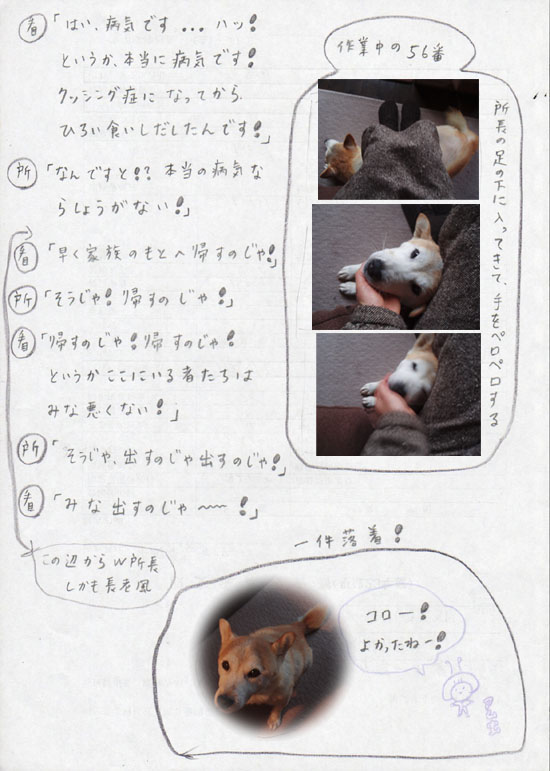 看「はい、病気です...ハッ!
というか、本当に病気です!
クッシング症に なってから
ひろい食いしだしたんです!」
所「なんですと!? 本当の病気な
らしょうがない!」
看「早く家族のもとへ帰すのじゃ!」
所「そうじゃ!帰すのじゃ!」
看「帰すのじゃ!帰すのじゃ!
というかここにいる者たちは
みな悪くない!」
所「そうじゃ、出すのじゃ出すのじゃ!」
看「みな出すのじゃ〜〜!」
この辺からW所長
しかも長老風
作業中の56番
所長の足の下に入ってきて、手をペロペロする
一件落着!
コロー!
よかったねー!